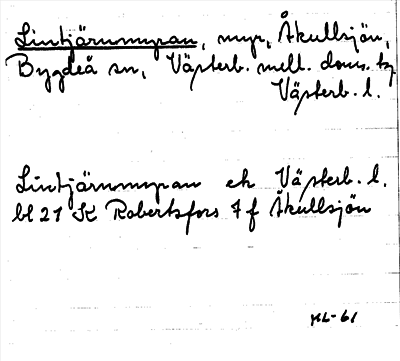 Lintjärnmyran, myr, Åkullsjön,
Bygdeå sn, Västerb. mell. doms. tg
Västerb. l.
Lintjärnmyran ek Västerb. l.
bl 21 K Robertsfors 7 f Åkullsjön
HL-61